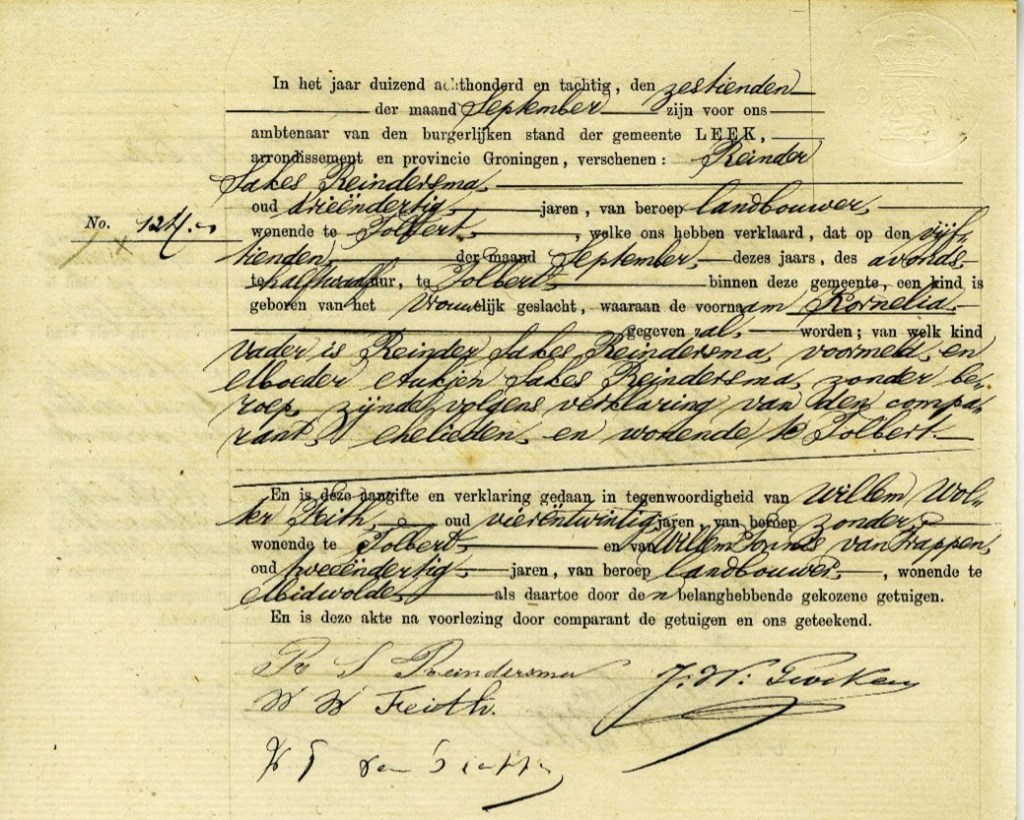 In het jaar duizend achthonderd en tachtig, den zestienden
der maand September zijn voor ons
ambtenaar van den burgerlijken stand der gemeente LEEK,
arrondissement en provincie Groningen, verschenen: Reinder
Sakes Reindersma,
oud drieëndertig jaren, van beroep landbouwer,
No. 124.
wonende te Tolbert, welke ons hebben verklaard, dat op den vijf-
tienden der maand September dezes jaars, des avonds
te half twaalf uur, te Tolbert binnen deze gemeente, een kind is
geboren van het vrouwelijk geslacht, waaraan de voornaam Kornelia
gegeven zal worden; van welk kind
vader is Reinder Sakes Reindersma, voormeld, en
Moeder Aukjen Sakes Reindersma, zonder be-
roep, zijnde, volgens verklaring van den compa-
rant, ehelieden, en wonende te Tolbert.
En is deze aangifte en verklaring gedaan in tegenwoordigheid van Willem Wol-
ter Feith, oud vierëntwintig jaren, van beroep zonder,
wonende te Tolbert, en van Willem van Trappen,
oud tweeëndertig jaren, van beroep landbouwer, wonende te
Midwolde, als daartoe door den belanghebbende gekozene getuigen.
En is deze akte na voorlezing door comparant de getuigen en ons geteekend.
R S Reindersma
W W Feith.